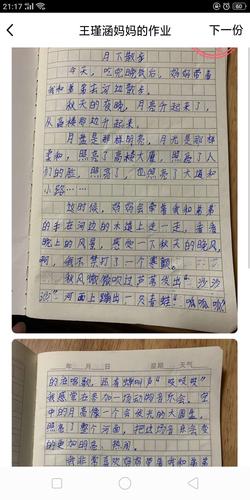 21:17
60
王瑾涵妈妈的作业
下一份
月下散步
今天，吃完晚饭后，妈妈带着
我和弟弟在河边散步。
秋天的夜晚，月亮升起来了，
从高楼那边升起来。
月盘是那样的亮，月光是那样
柔和，照亮了高楼大厦，照亮了人
们的脸，照亮了，也照亮了大道和
小路……
这时候，妈妈会带着我和弟弟
的手在河边的木道上走一走，看看
晚上的风景，感受一下秋天的晚风，
啊，我不禁打了一个寒颤。
秋风微微吹过芦苇发出“沙沙
沙”河面上蹦出一只青蛙“呱呱呱”
年 月 日 星期 天气
的在唱歌，还有蟋蟀声“吱吱吱”
我感觉在参加一场动物音乐会。空
中的月亮像一个会发光的大圆盘，
照亮了整个河面，把这场音乐会变
的更加的美、热闹。
我非常喜欢妈妈带着我和弟弟